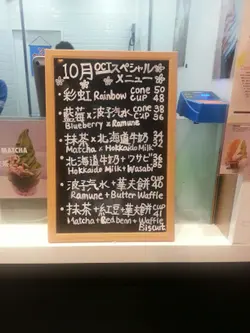 10月 OCTスペシャル
メニュー
• 彩虹 Rainbow CONE 50
CUP 48
• 藍莓 x 波子汽水 CONE 38
CUP 36
Blueberry x Ramune
• 抹茶 x 北海道牛奶 34
32
Matcha x Hokkaido Milk
• 北海道牛奶 + ワサビ 36
Hokkaido Milk + Wasabi
• 波子汽水 + 華夫餅 CUP 40
Ramune + Butter Waffle
• 抹茶 + 紅豆 + 華夫餅 CUP 41
Matcha + Red bean + Waffle
Biscuit
MATCHA